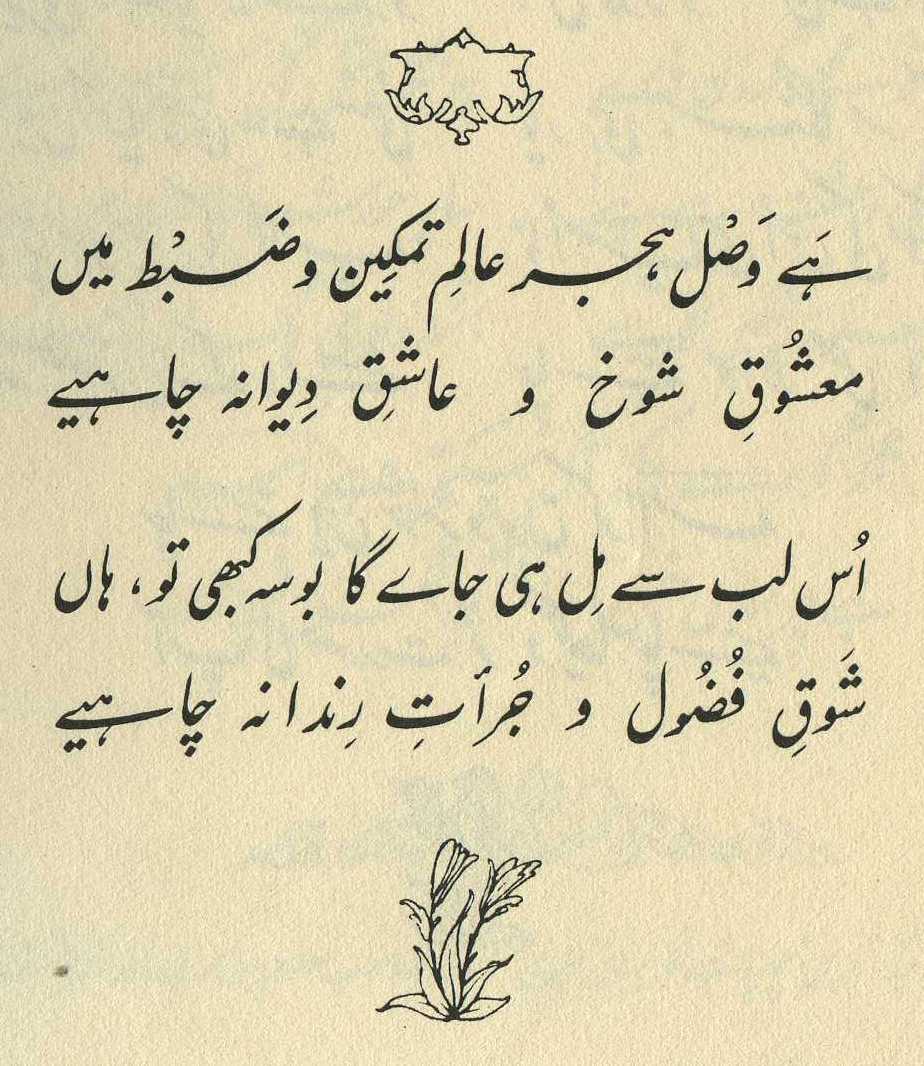 ہَے وَصْل ہجر عالمِ تمکِین و ضَبْط میں
معشُوقِ شوخ و عاشقِ دِیوانہ چاہیے
اُس لب سے مِل ہی جاے گا بوسہ کبھی تو، ہاں
شَوقِ فُضُول و جُرأتِ رِندانہ چاہیے